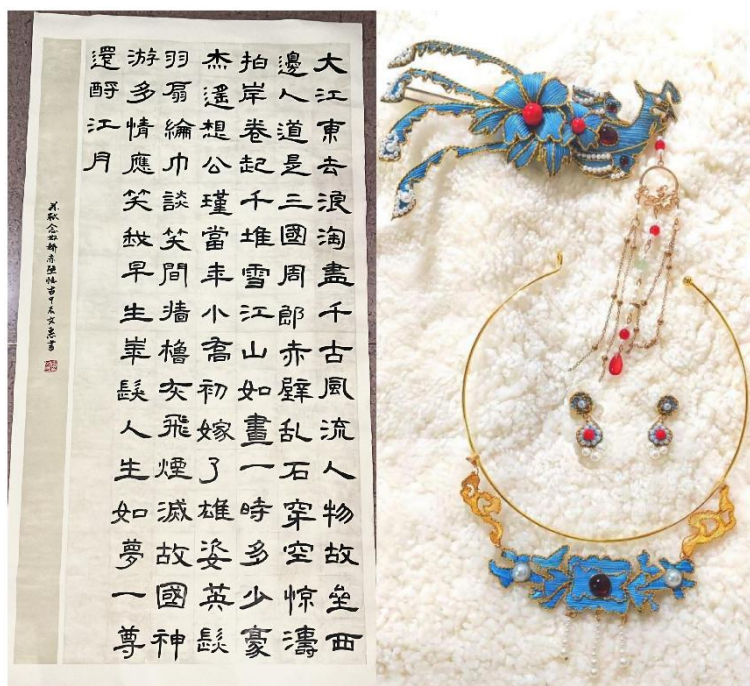 大江東去浪淘盡千古風流人物故垒西
邊人道是三國周郎赤壁乱石穿空惊濤
拍岸卷起千堆雪江山如畫一時多少豪
杰遙想公瑾當年小喬初嫁了雄姿英髮
羽扇綸巾談笑間牆櫓灰飛煙滅故國神
游多情應笑我早生華髮人生如夢一尊
還酹江月
苏轼念奴娇赤壁怀古甲辰文惠書